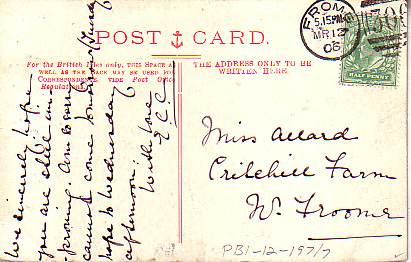 POST CARD.
For the British Isles only, this Space as
well as the Back may be used for
Correspondence, vide Post Office
Regulations.
THE ADDRESS ONLY TO BE
WRITTEN HERE.
FROME
5.15PM
MR 12
06
HALF PENNY
We sincerely hope
you are still im-
-proving. Am sorry
cannot come tomorrow Tuesday
hope to Wednesday
afternoon.
With love
E.C.C.
Miss Allard
Critchill Farm
Nr Froome
PB1-12-197/7